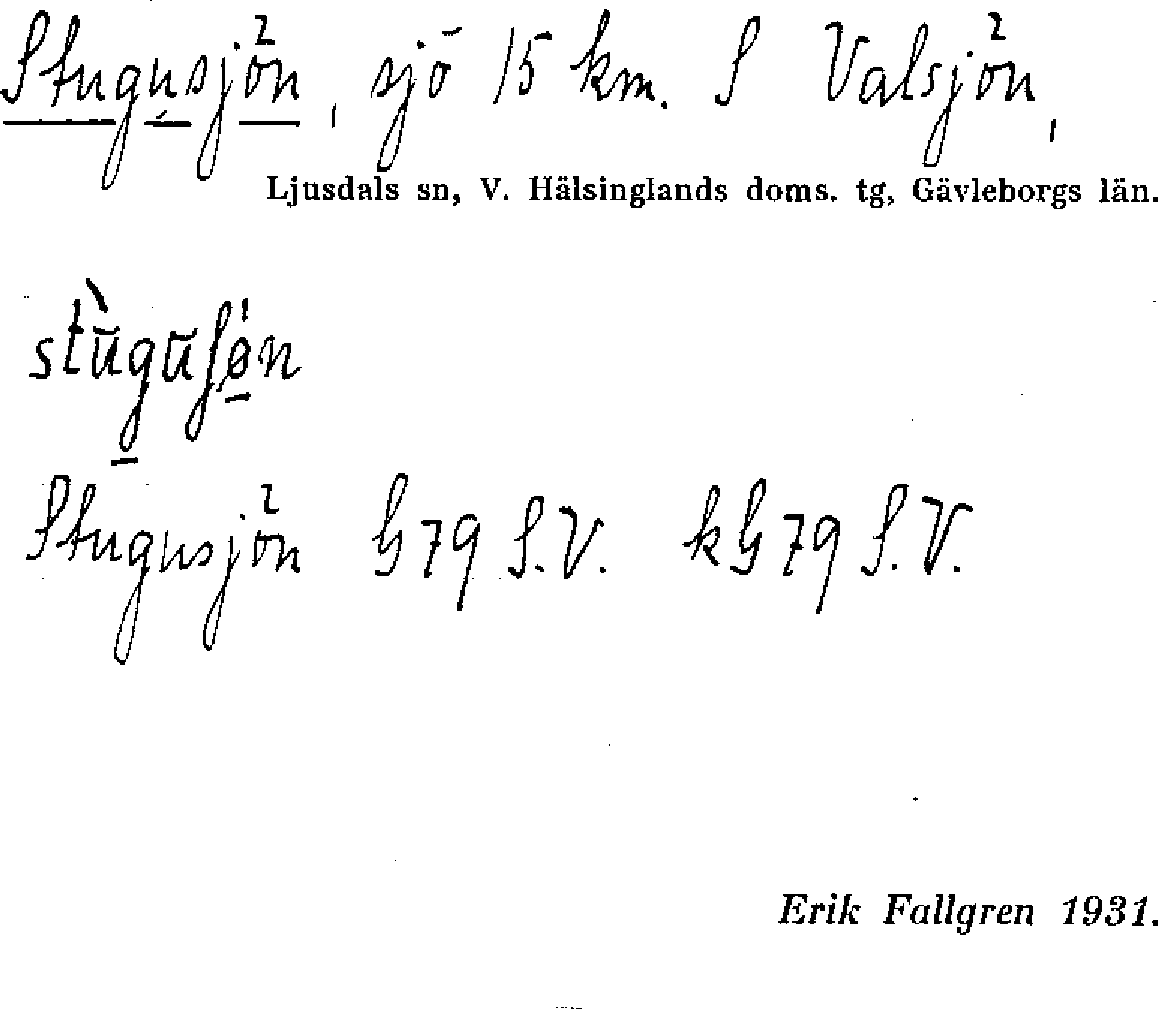 Stugusjön, sjö 15 km. S Valsjön,
Ljusdals sn, V. Hälsinglands doms. tg, Gävleborgs län.
stùgŭʃøn
Stugusjön G79 S.V. kG79 S.V.
Erik Fallgren 1931.